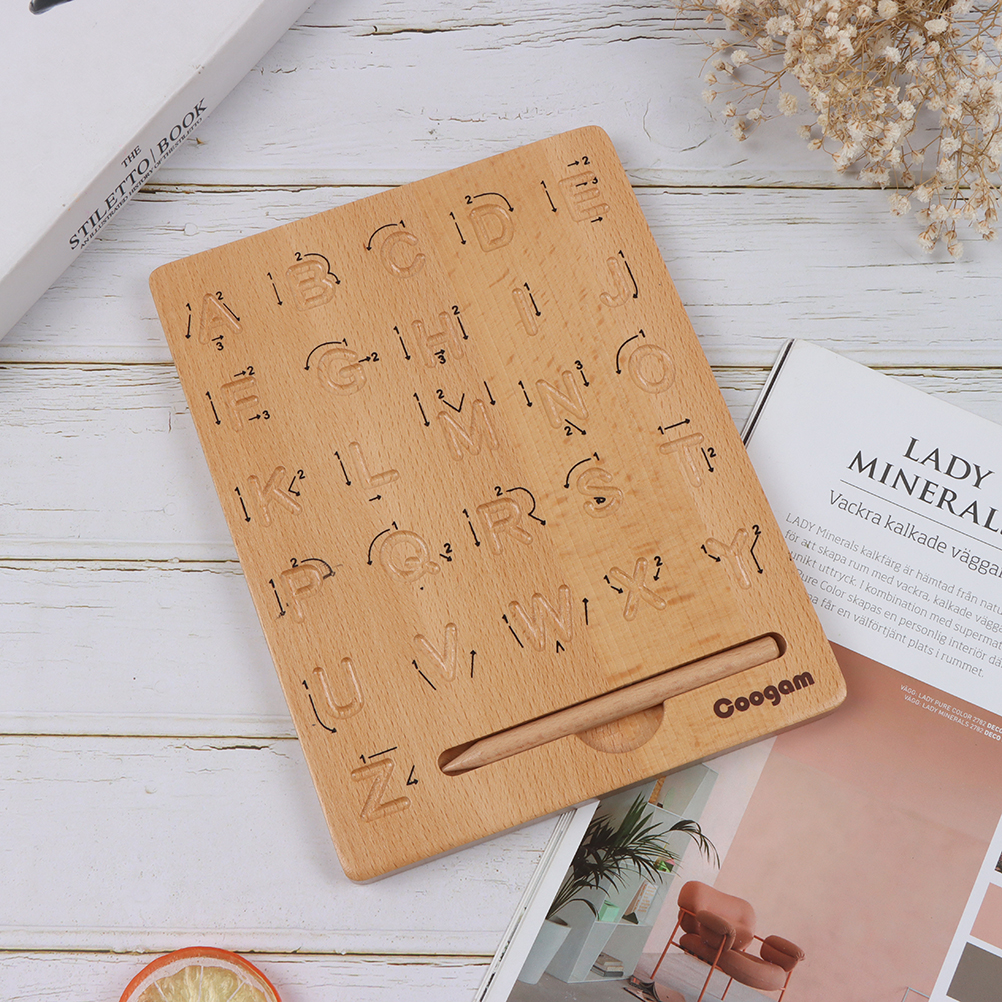 THE
STILETTO/BOOK
AN ILLUSTRATED HISTORY OF THE STILETTO
A B C D E
F G H I J
K L M N O
P Q R S T
U V W X Y
Z
Coogam
LADY
MINERALS
Vackra kalkade vägga
LADY Minerals kalkfärg är hämtad från natu
för att skapa rum med vackra, kalkade vägg
unikt uttryck. I kombination med supermat
Pure Color skapas en personlig interiör dä
a får en välförtjänt plats i rummet.
VÄGG: LADY PURE COLOR 2782 DECO
VÄGG: LADY MINERALS 2782 DECO